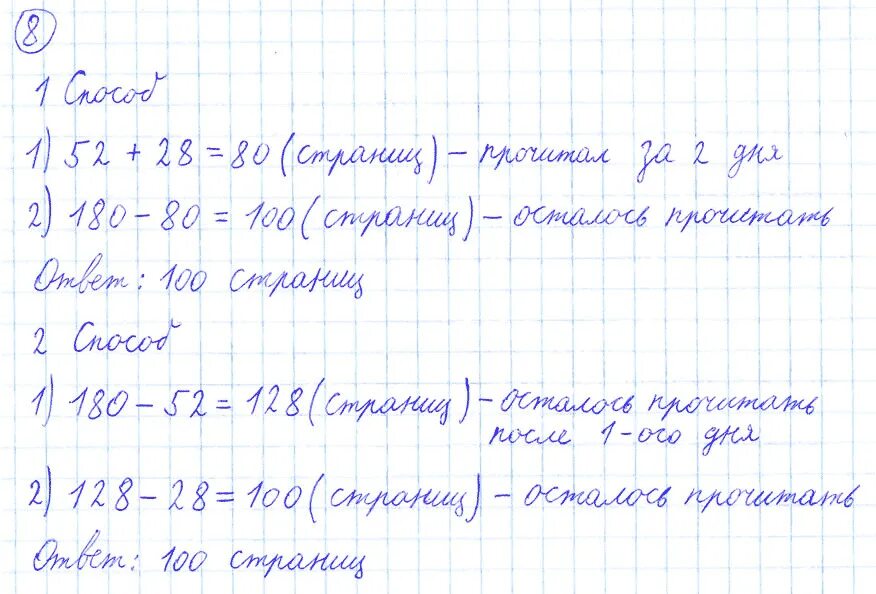 8
1 Способ
1) 52 + 28 = 80 (страниц) – прочитал за 2 дня
2) 180 – 80 = 100 (страниц) – осталось прочитать
Ответ: 100 страниц
2 Способ
1) 180 – 52 = 128 (страниц) – осталось прочитать
после 1-ого дня
2) 128 – 28 = 100 (страниц) – осталось прочитать
Ответ: 100 страниц